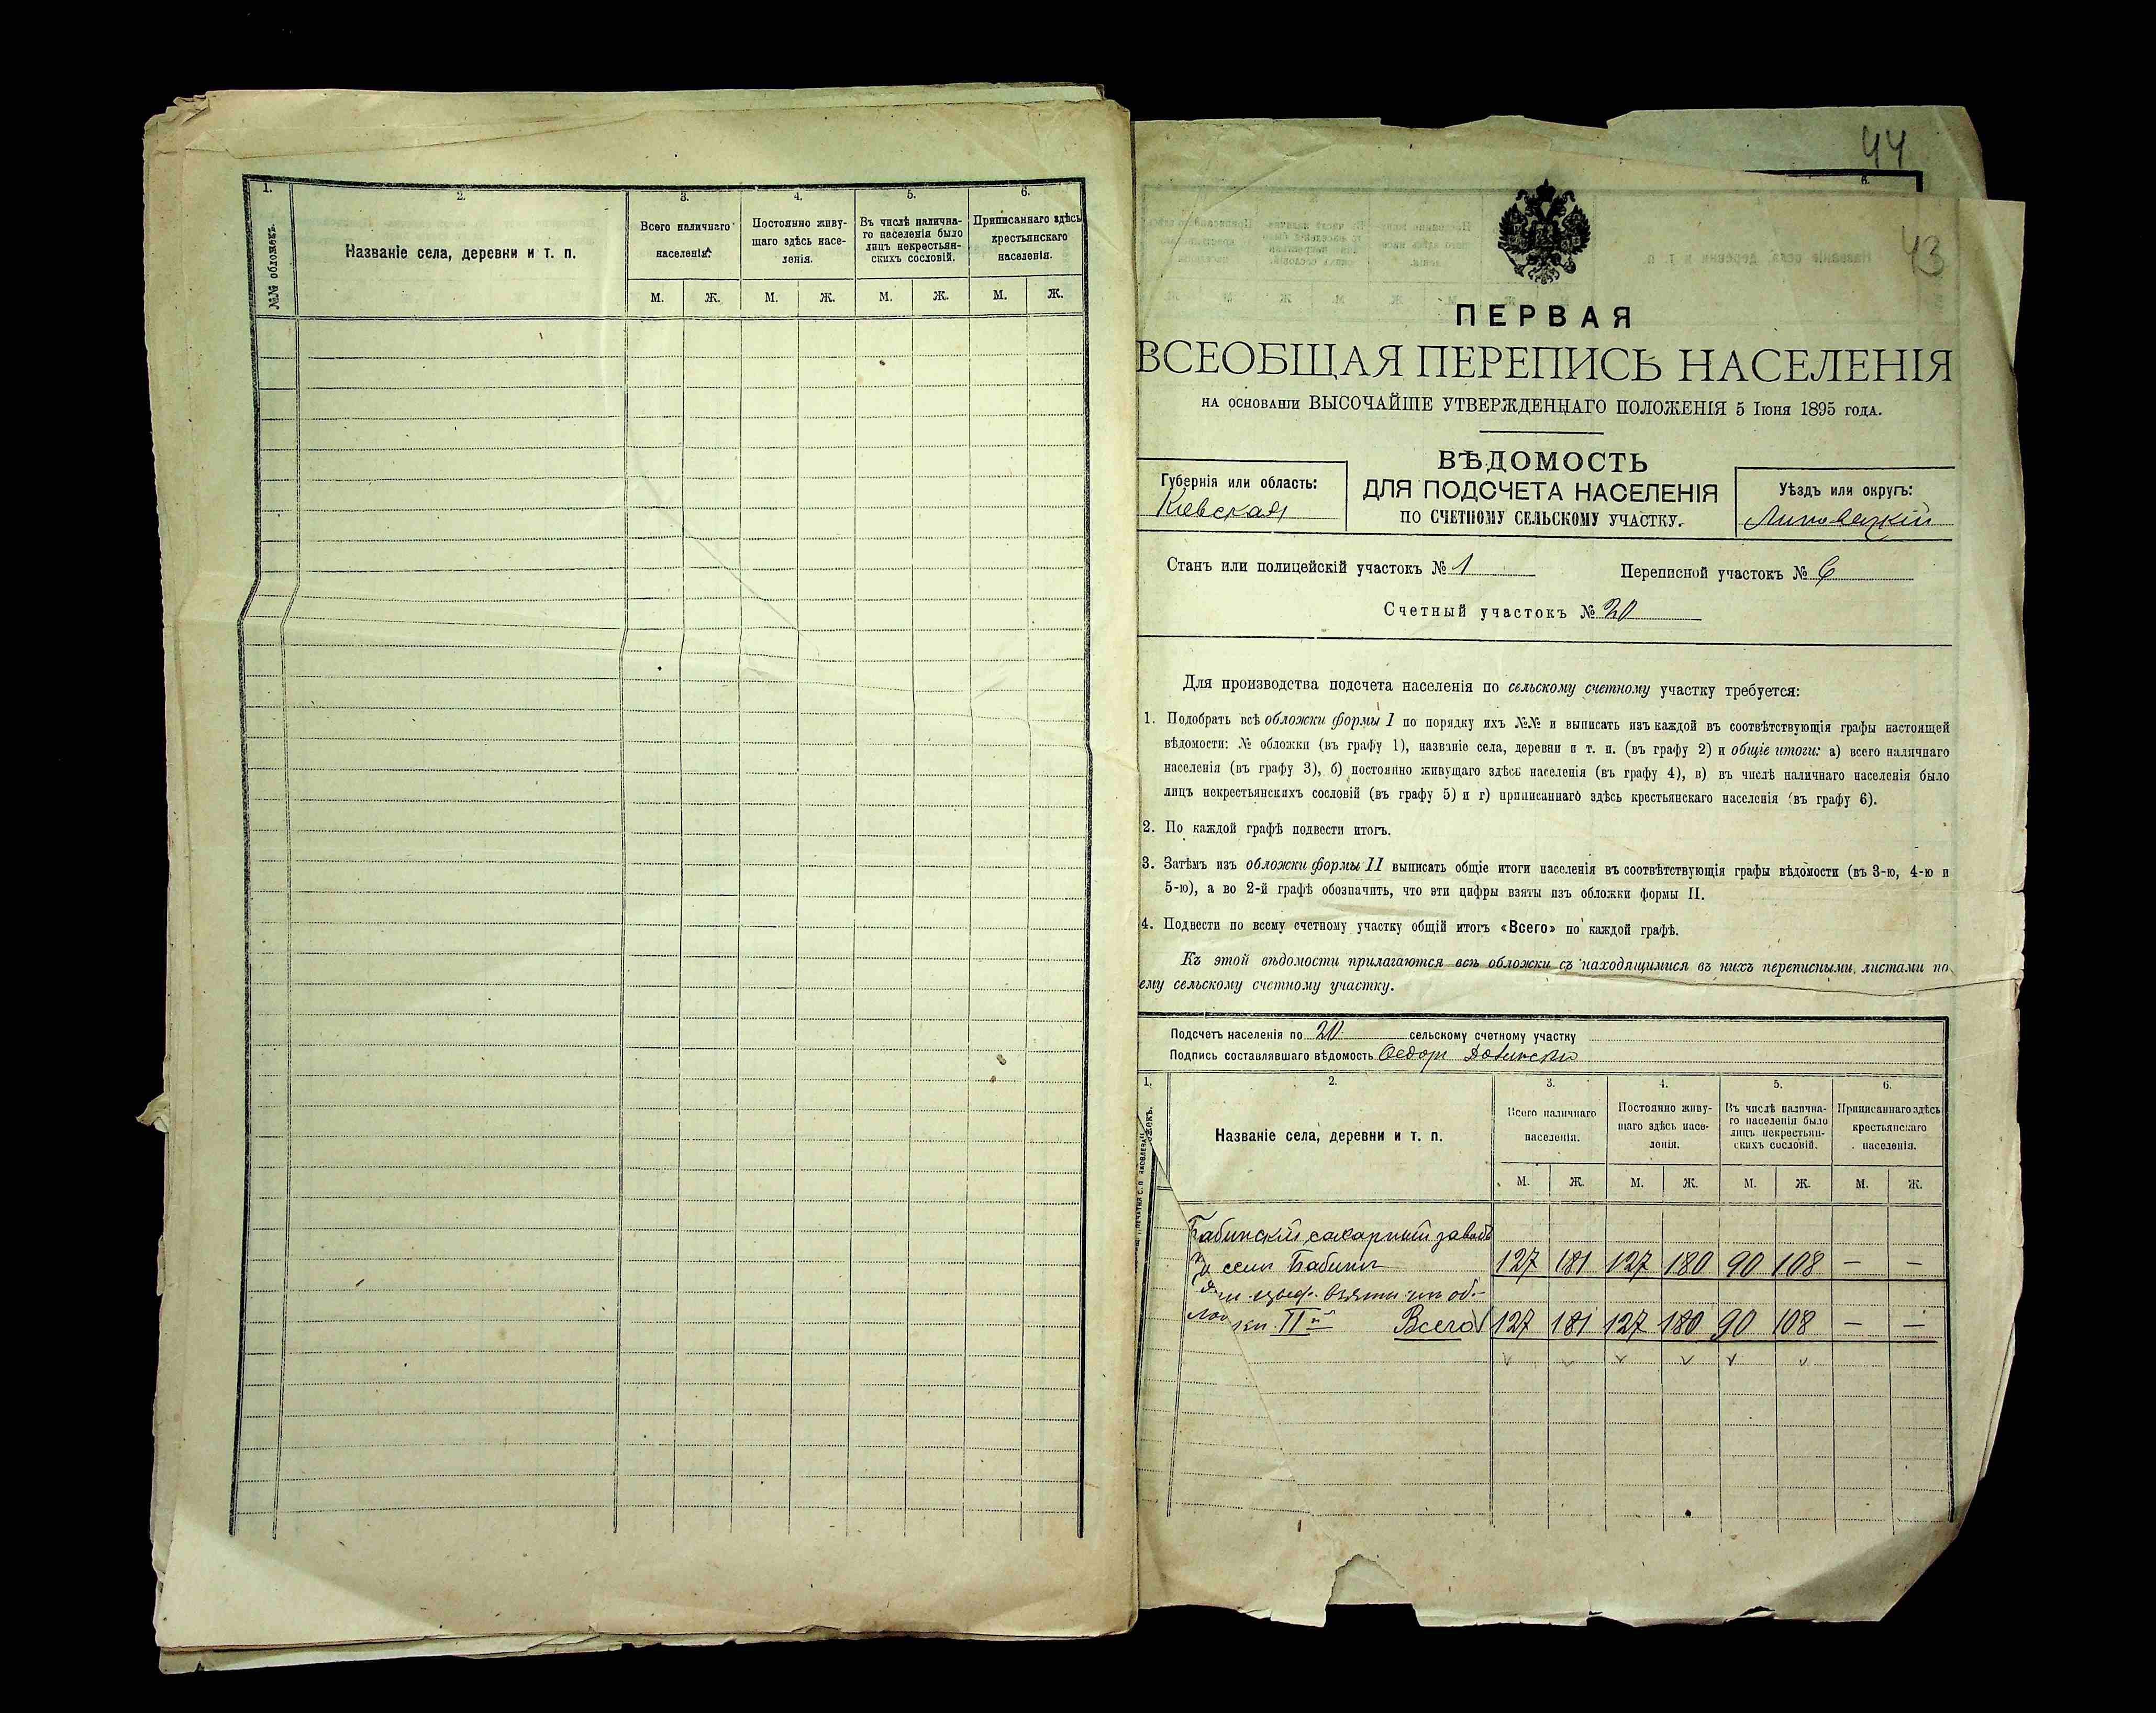 1.
2.
3.
4.
5.
6.
№№ обложекъ.
Названіе села, деревни и т. п.
Всего наличнаго населенія.
Постоянно живу-
щаго здѣсь насе-
ленія.
Въ числѣ налична-
го населенія было
лицъ некрестьян-
скихъ сословій.
Приписаннаго здѣсь
крестьянскаго
населенія.
М. Ж. М. Ж. М. Ж. М. Ж.
44
43
ПЕРВАЯ
ВСЕОБЩАЯ ПЕРЕПИСЬ НАСЕЛЕНІЯ
НА ОСНОВАНІИ ВЫСОЧАЙШЕ УТВЕРЖДЕННАГО ПОЛОЖЕНІЯ 5 Іюня 1895 года.
ВѢДОМОСТЬ
ДЛЯ ПОДСЧЕТА НАСЕЛЕНІЯ
ПО СЧЕТНОМУ СЕЛЬСКОМУ УЧАСТКУ.
Губернія или область:
Кіевская
Уѣздъ или округъ:
Липовецкій
Станъ или полицейскій участокъ № 1
Переписной участокъ № 6
Счетный участокъ № 20
Для производства подсчета населенія по сельскому счетному участку требуется:
1. Подобрать всѣ обложки формы I по порядку ихъ №№ и выписать изъ каждой въ соотвѣтствующія графы настоящей
вѣдомости: № обложки (въ графу 1), названіе села, деревни и т. п. (въ графу 2) и общіе итоги: а) всего наличнаго
населенія (въ графу 3), б) постоянно живущаго здѣсь населенія (въ графу 4), в) въ числѣ наличнаго населенія было
лицъ некрестьянскихъ сословій (въ графу 5) и г) приписаннаго здѣсь крестьянскаго населенія (въ графу 6).
2. По каждой графѣ подвести итогъ.
3. Затѣмъ изъ обложки формы II выписать общіе итоги населенія въ соотвѣтствующія графы вѣдомости (въ 3-ю, 4-ю и
5-ю), а во 2-й графѣ обозначить, что эти цифры взяты изъ обложки формы II.
4. Подвести по всему счетному участку общій итогъ «Всего» по каждой графѣ.
Къ этой вѣдомости прилагаются всѣ обложки съ находящимися въ нихъ переписными листами по
ему сельскому счетному участку.
Подсчетъ населенія по 20 сельскому счетному участку
Подпись составлявшаго вѣдомость Ѳедоръ
1.
2.
3.
4.
5.
6.
жекъ.
Названіе села, деревни и т. п.
Всего наличнаго
населенія.
Постоянно живу-
щаго здѣсь насе-
ленія.
Въ числѣ налична-
го населенія было
лицъ некрестьян-
скихъ сословій.
Приписаннаго здѣсь
крестьянскаго
населенія.
М. Ж. М. Ж. М. Ж. М. Ж.
Бабинскій сахарный заводъ
селѣ Бабинъ 127 181 127 180 90 108 — —
взяты изъ об-
лож
ки IIй Всего 127 181 127 180 90 108 — —